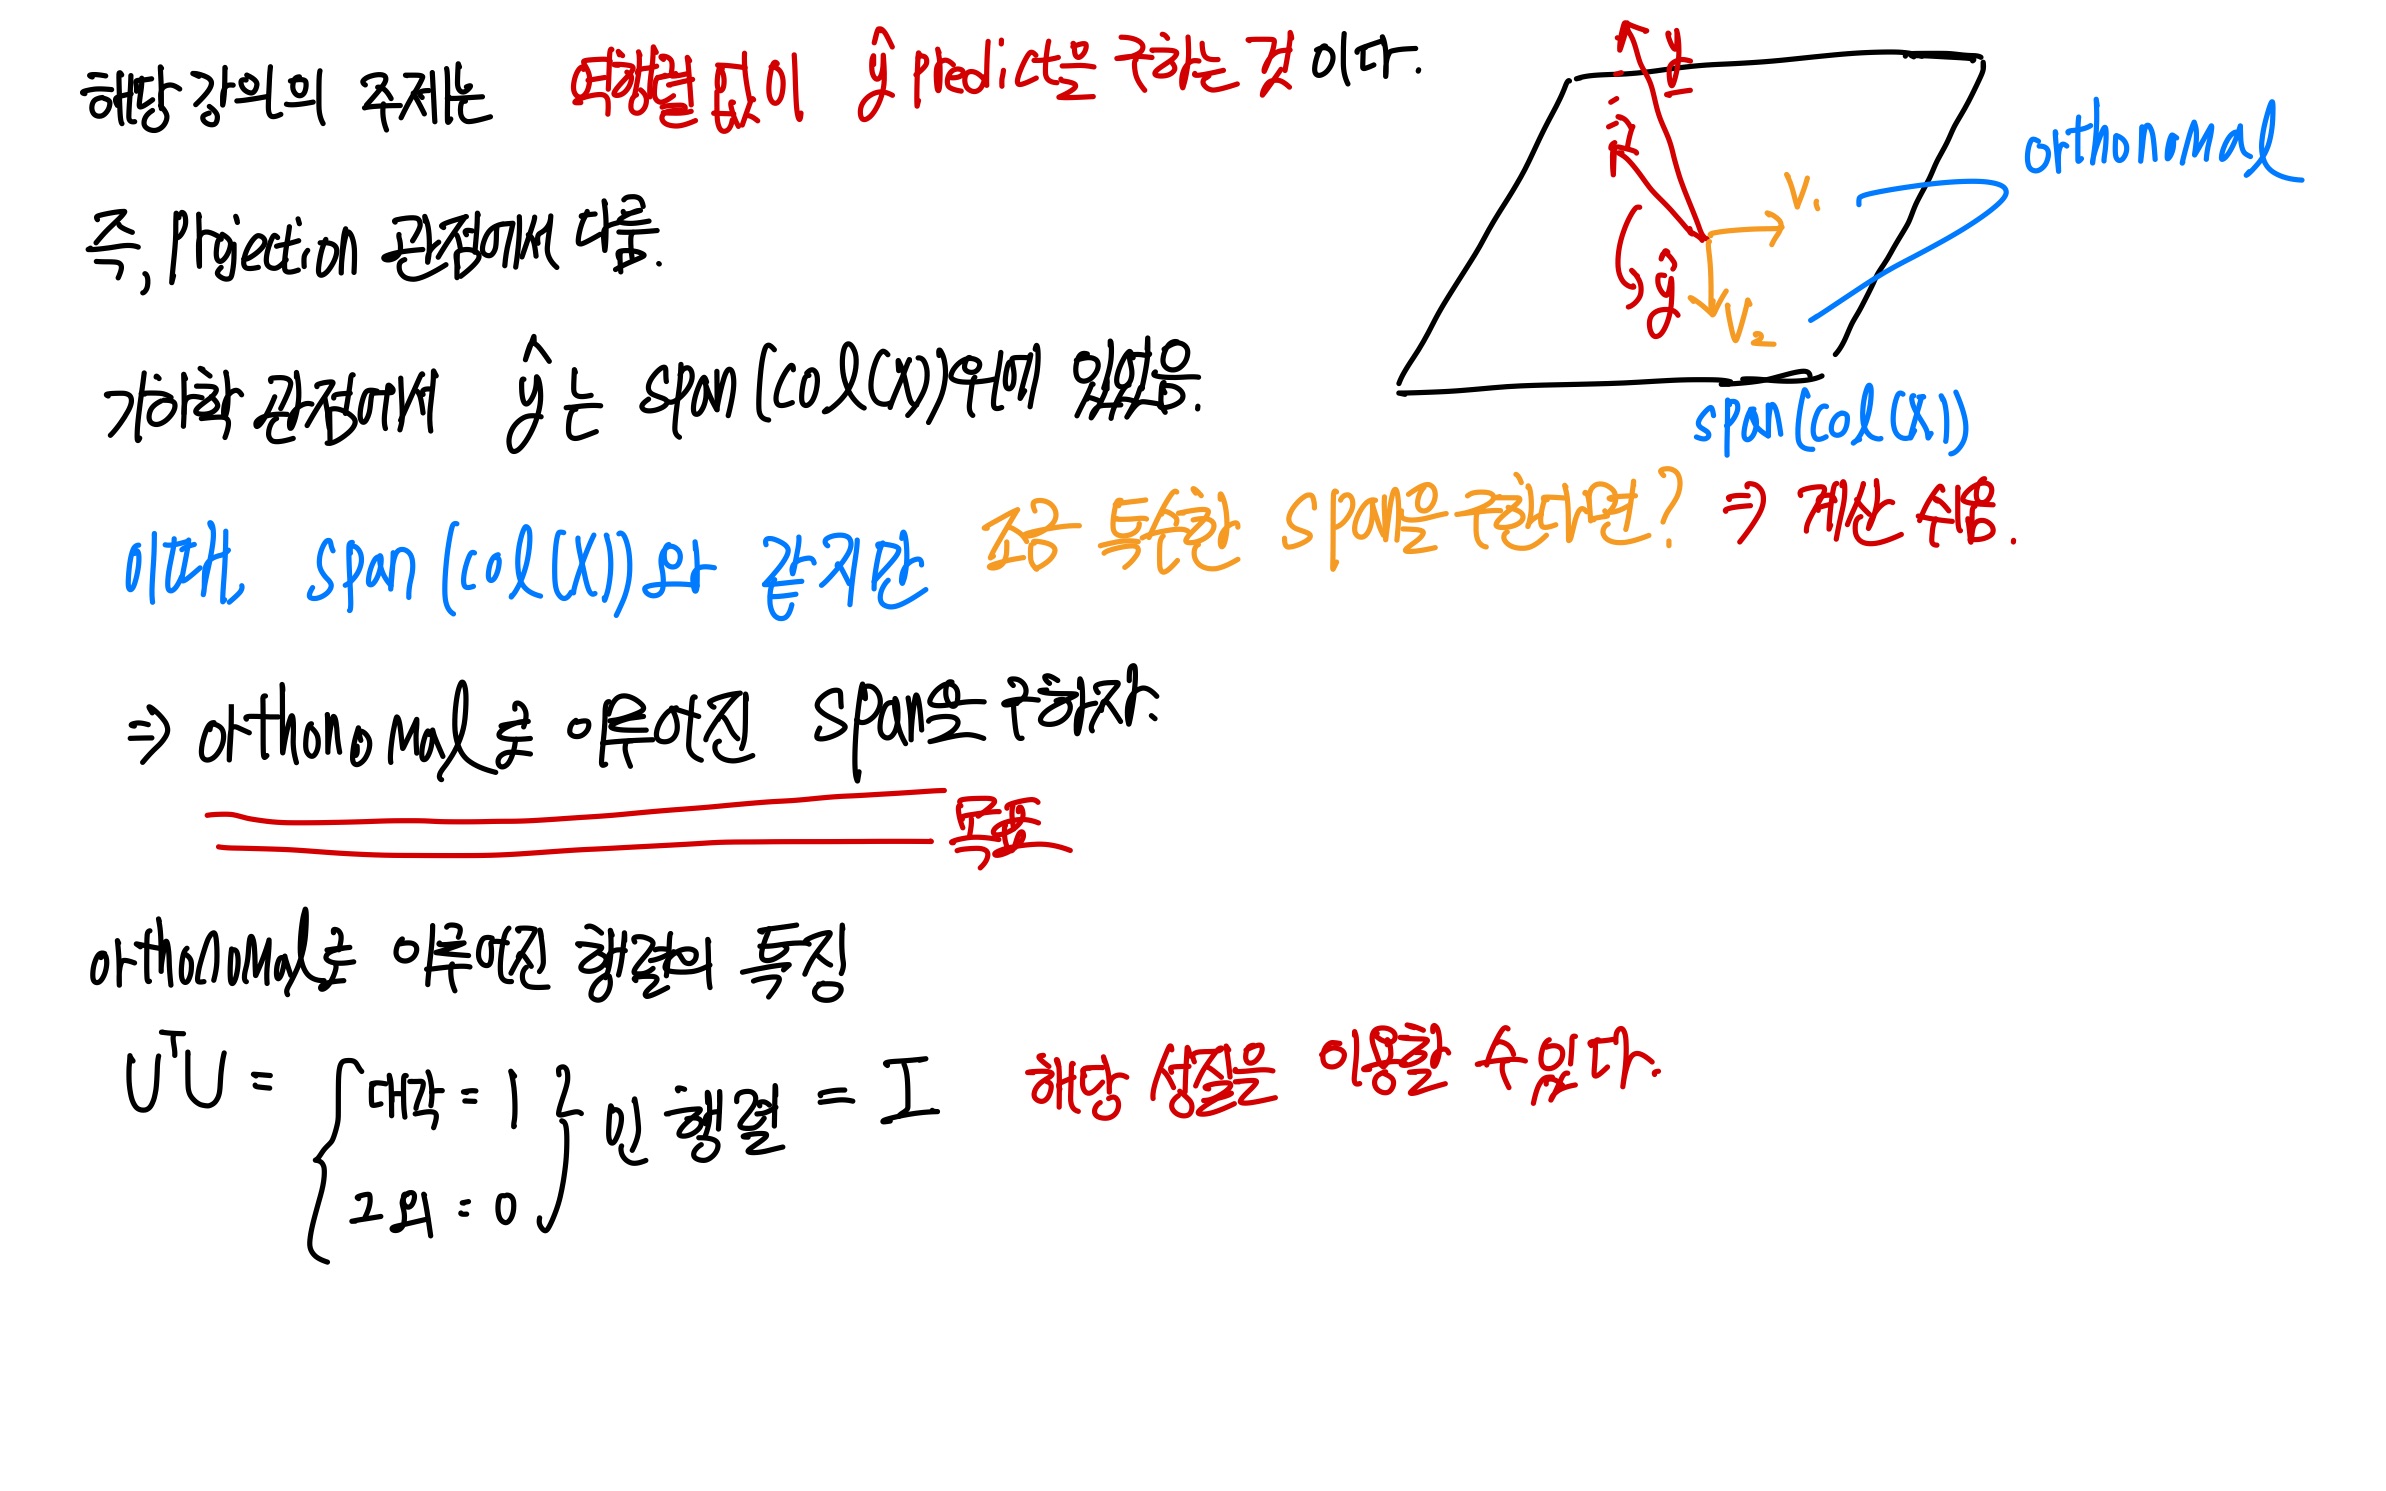 해당 강의의 주제는 여행길마지 ŷ Prediction을 구하는 것 이다.
즉, Projection 관점에서 다룸.
기하학 관점에서 ŷ는 span(Col(X))위에 있음.
이때, Span(Col(X))의 존재할 조금 특이한 span을 구한다면? ⇒ 계산 쉬움.
⇒ orthonormal로 이루어진 Span을 구하자.
중요
orthonormal로 이루어진 행렬의 특징
UᵀU = { 대각 = 1
그외 = 0 } 인 행렬 = I 해당 성질을 이용할 수 있다.
y
ŷ
V₁
V₂
orthonormal
span(Col(X))